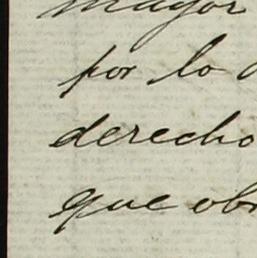 mayor
por lo
derecho
que